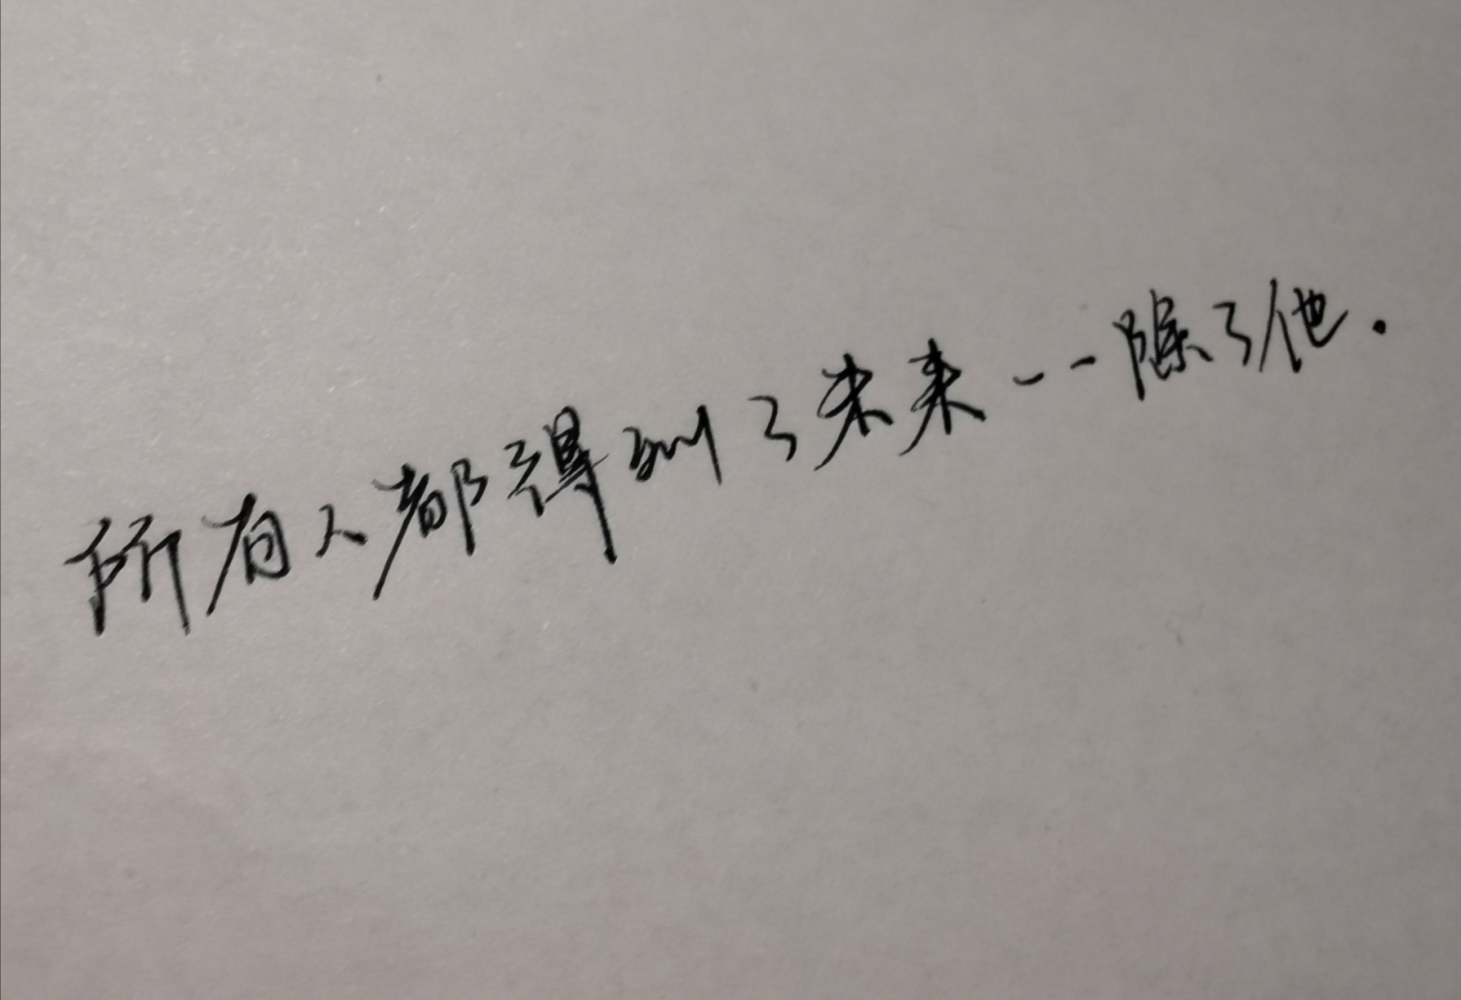 所有人都得到了未来--除了他.